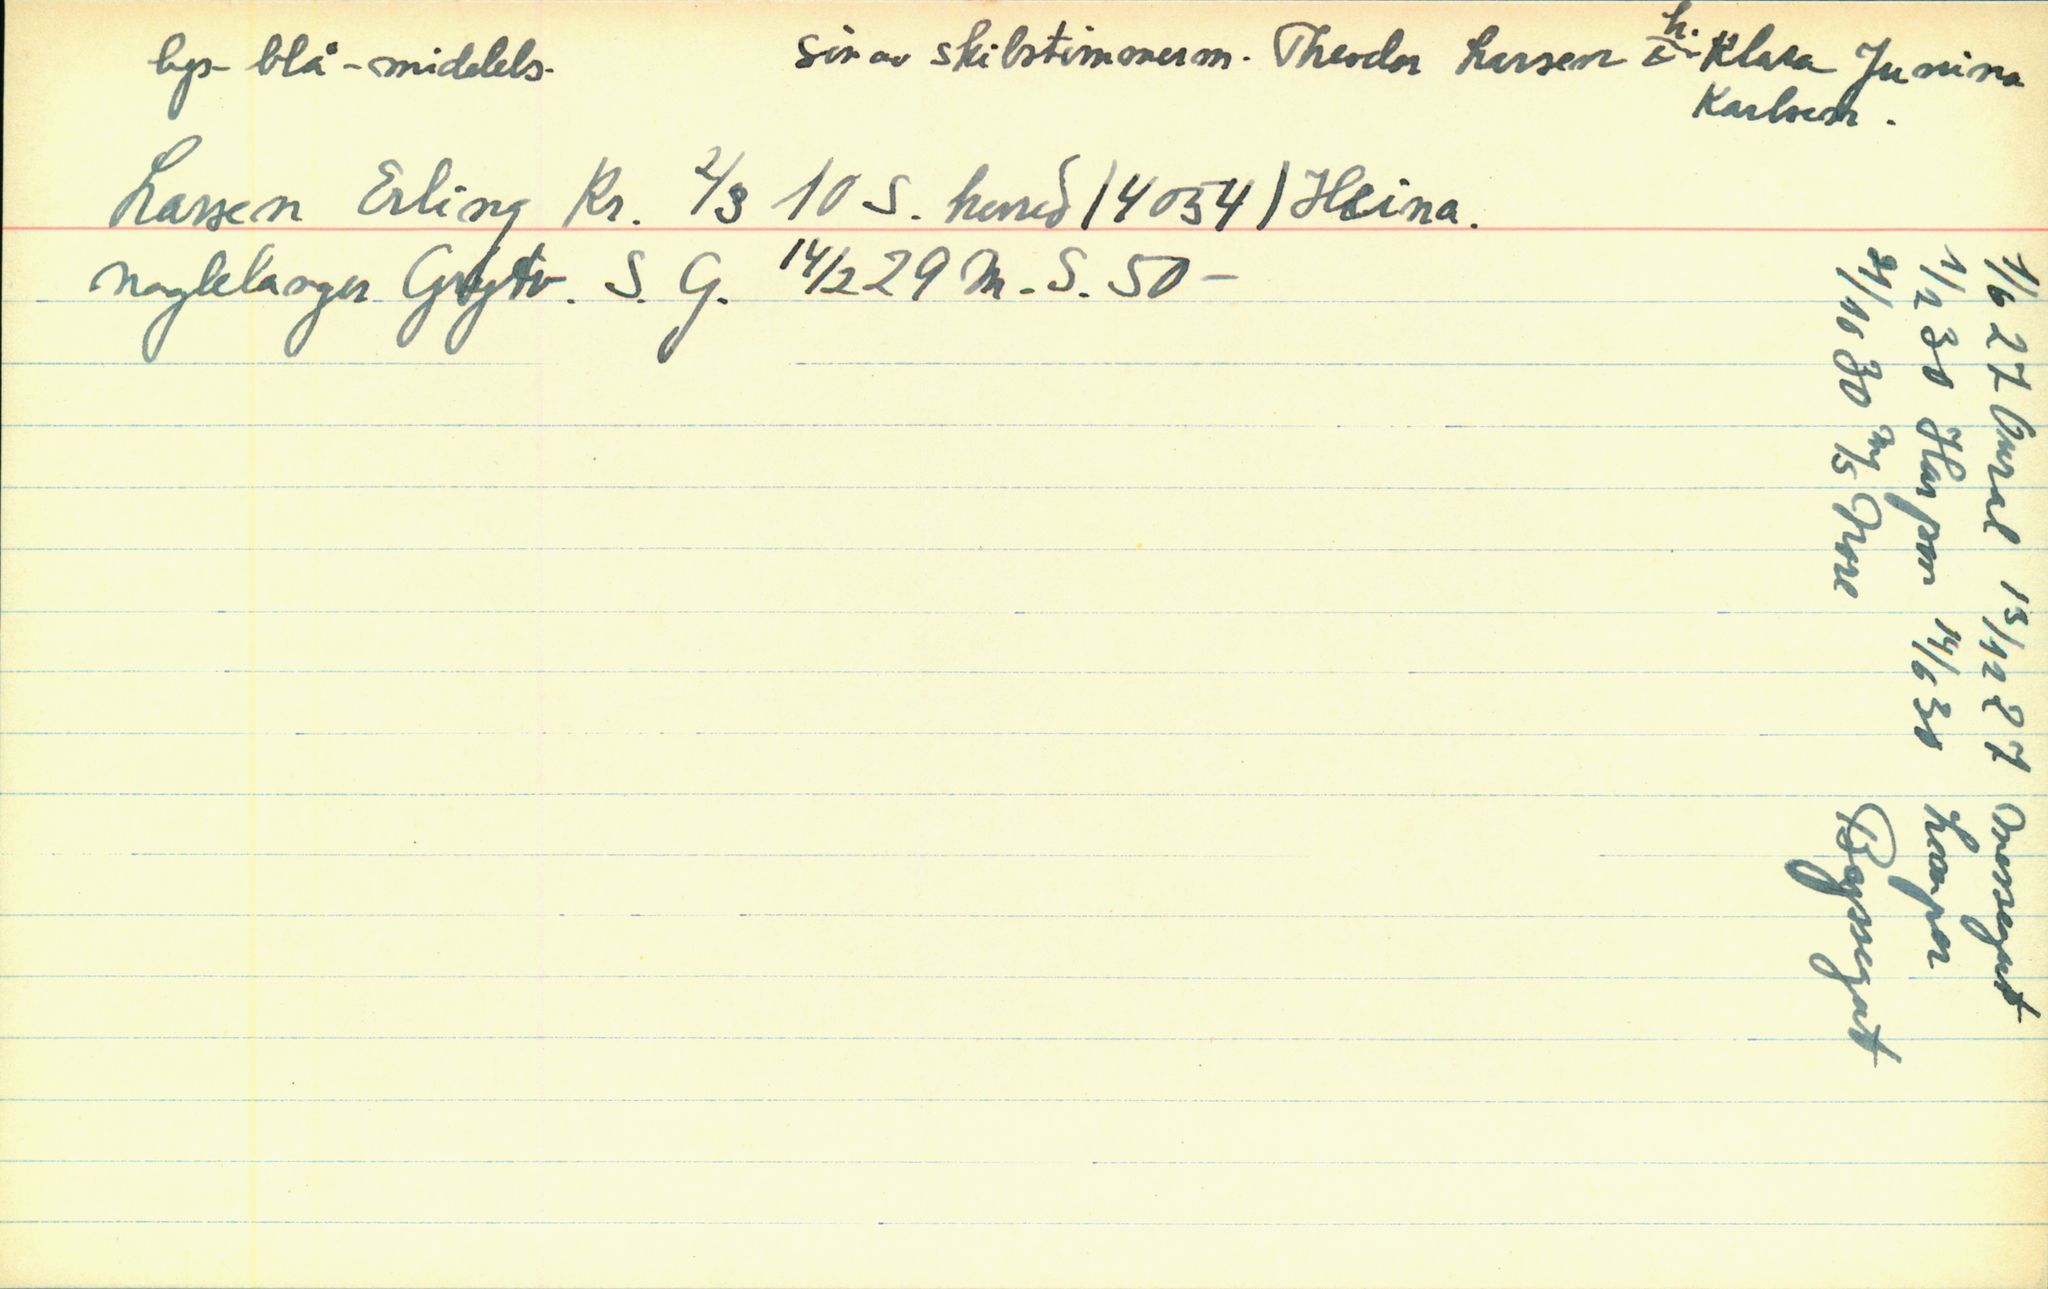 lys- blå - middels.
søn av skibstømmerm. Theodor Larsen & h. Klara Junina
Karlsen.
Larsen Erling Kr. 2/3 10 S. herred (4054) Heina.
naglelanger Grytv. S. G. 14/2 29 M. S. 50 -
1/6 27 Aural 13/12 27 Messegut
1/2 30 Harpon 14/6 30 Lemper
21/10 30 15 Nore Byssegut